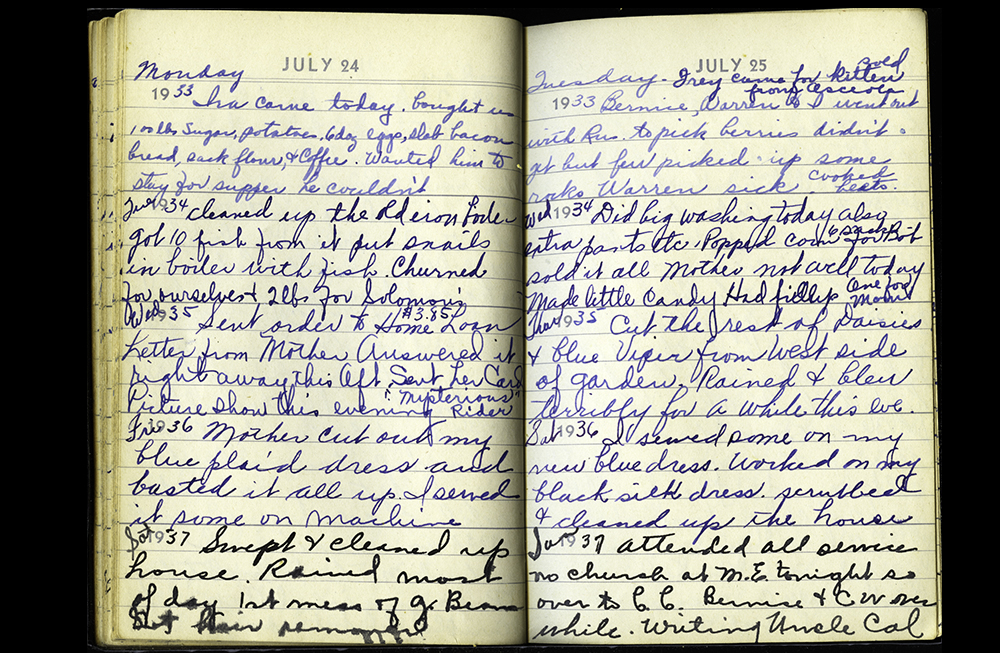 JULY 24
Monday
1933 Ira came today. bought us
100 lbs Sugar, potatoes, 6 doz eggs, slab bacon
bread, sack flour, & Coffee. Wanted him to
stay for supper he couldn't
Tues 1934 cleaned up the old iron boiler
got 10 fish from it put snails
in boiler with fish. Churned
for ourselves & 2 lbs for Solomon's
Wed 1935 Sent order to Home Loan $3.85
Letter from Mother Answered it
right away this Aft. Sent her Card
Picture show this evening "Mysterious Rider"
Fri 1936 Mother cut out my
blue plaid dress and
basted it all up. I sewed
it some on machine
Sat 1937 Swept & cleaned up
house. Rained most
of day 1st mess of g. Beans
Set hair
JULY 25
Tuesday. Frey came for kitten
from Osceola
1933 Bernice, Warren & I went out
with Rus. to pick berries didn't
get but few picked up some
rocks Warren sick. Cooked
beets.
Wed 1934 Did big washing today also
extra pants etc. Popped corn 6 sacks for Bob
sold it all Mother not well today
Made little Candy Had fillup One for
1935 Cut the rest of Daisies
& blue Viper from West side
of garden. Rained & blew
terribly for a while this eve.
Sat 1936 I sewed some on my
new blue dress. Worked on my
black silk dress. scrubbed
& cleaned up the house
Sun 1937 attended all service
no church at M.E. tonight so
over to C.C. Bernise & C.W over
while. Writing Uncle Cal